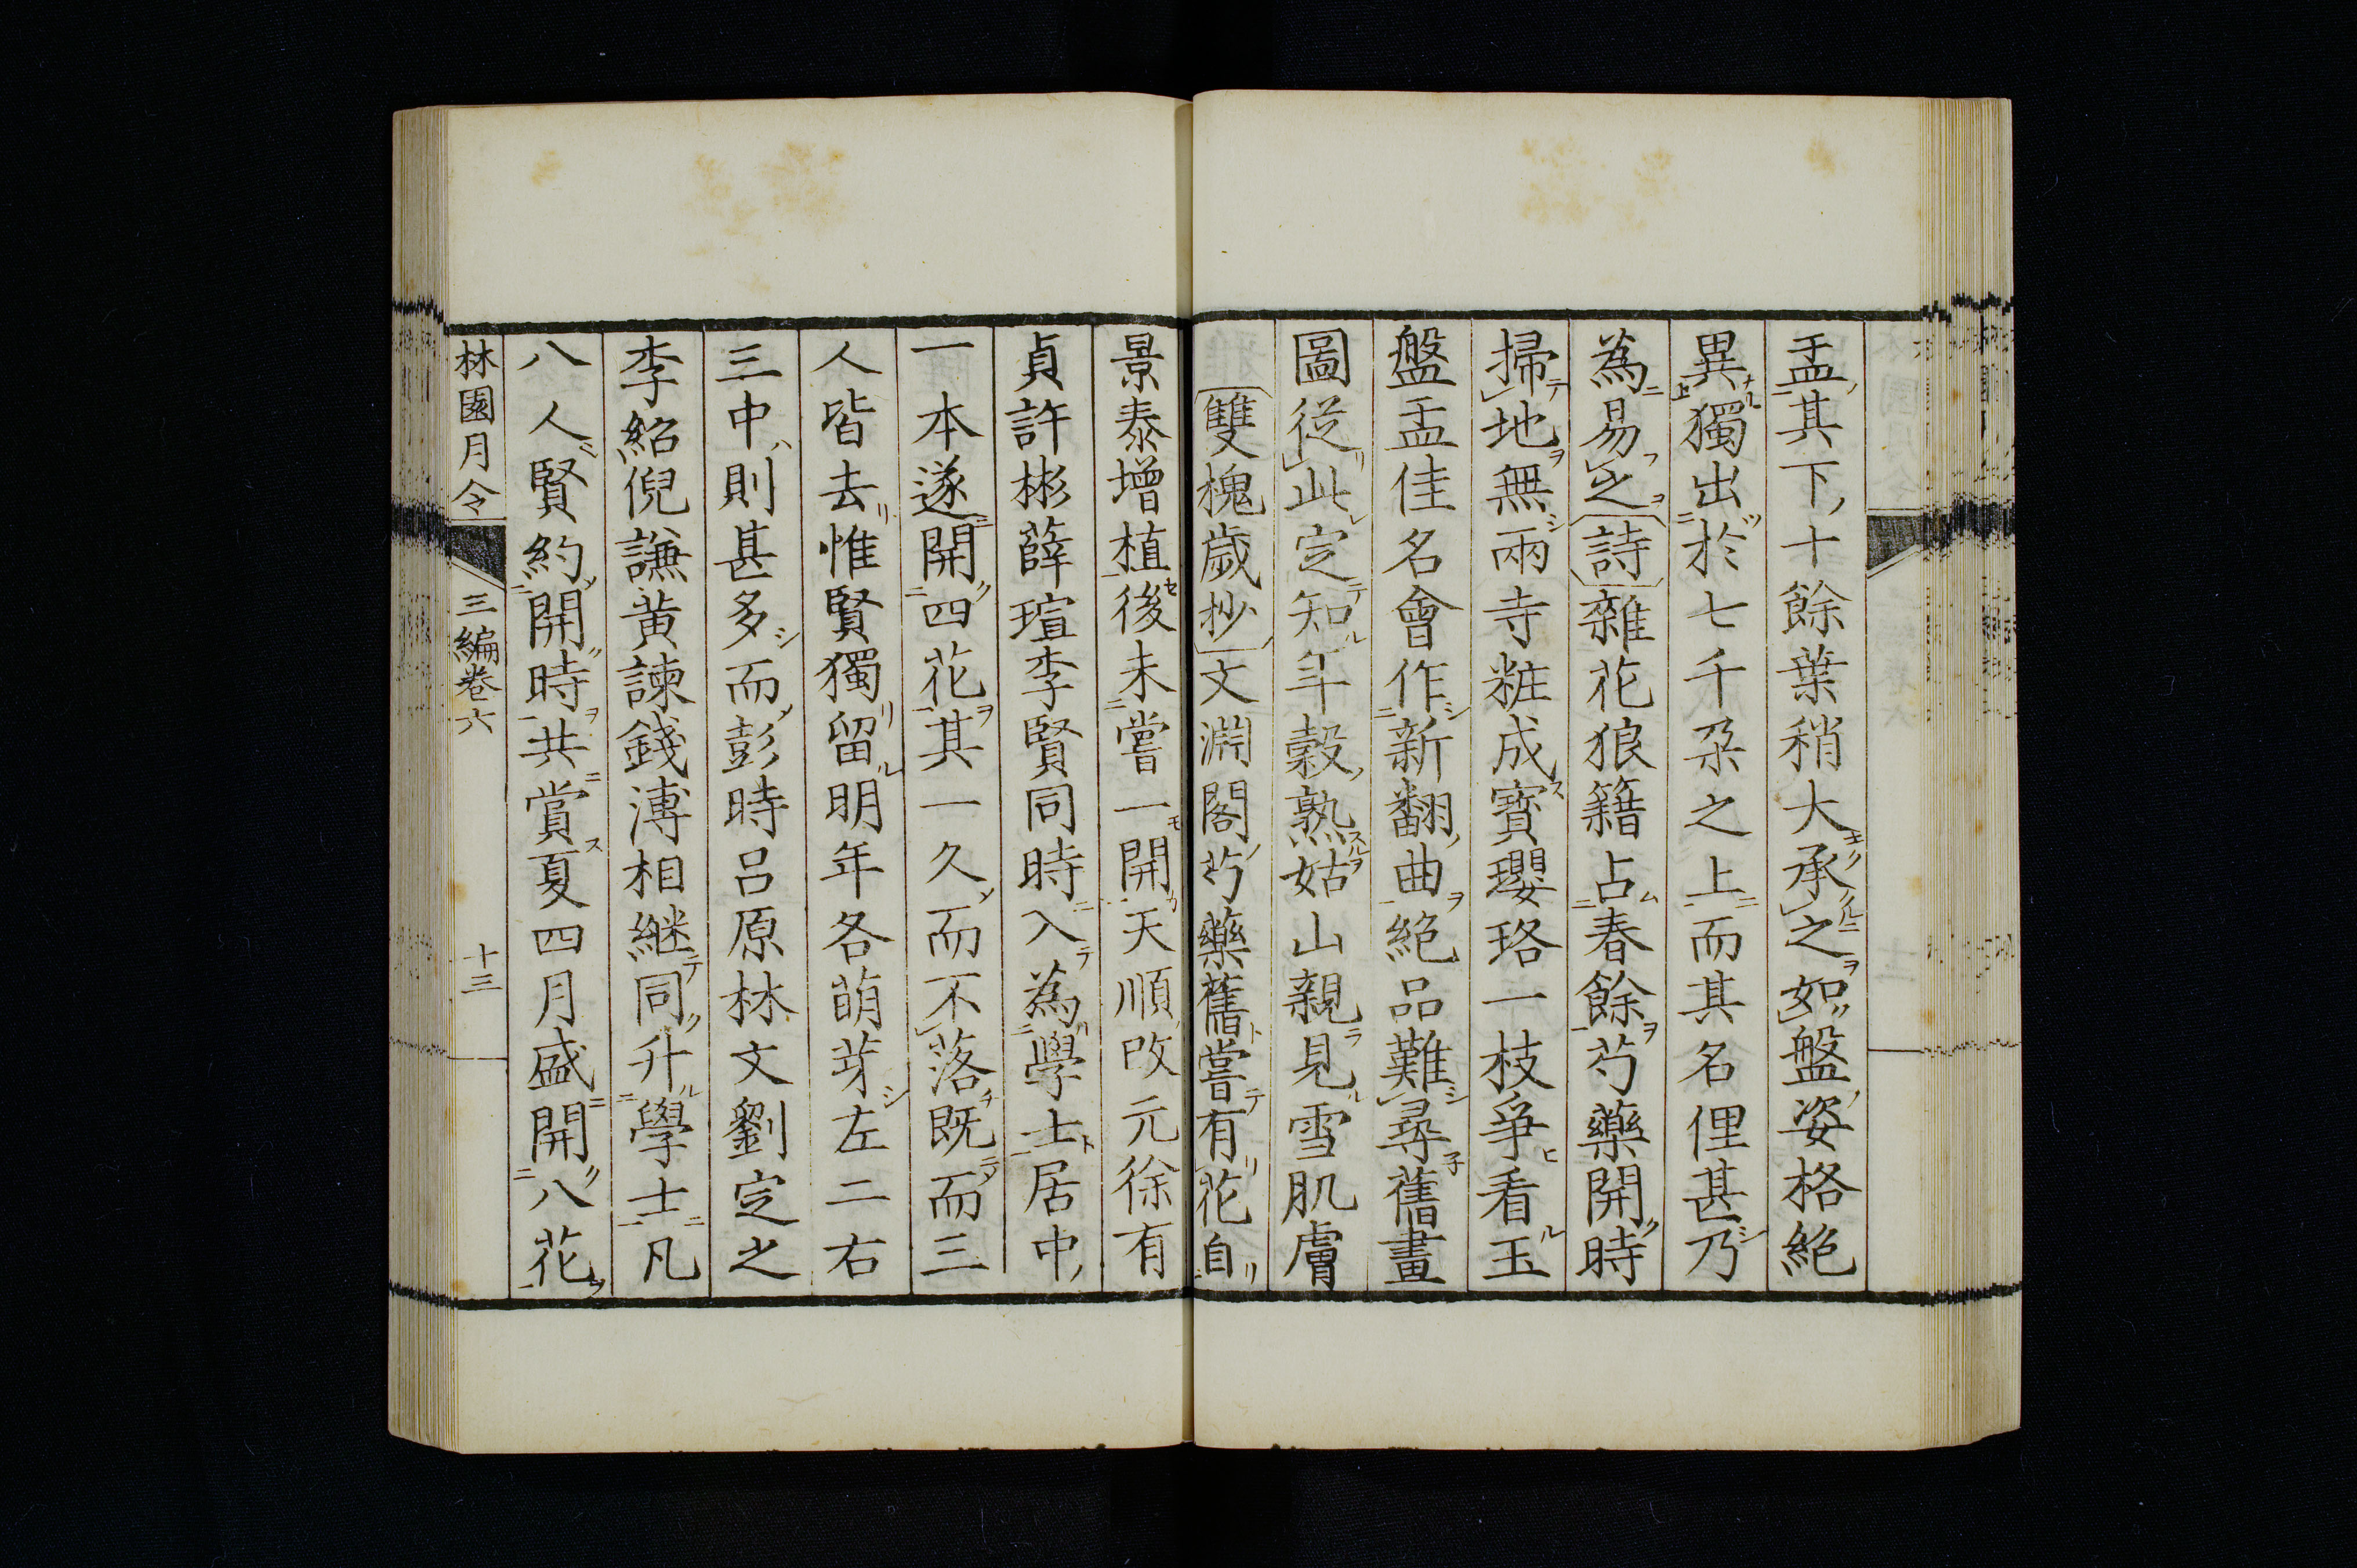 盂其下十餘葉稍大承之如盤姿格絶
異獨出於七千朶之上而其名俚甚乃
為易之詩雜花狼籍占春餘芍藥開時
掃地無兩寺粧成寳瓔珞一枝爭看玉
盤盂佳名會作新翻曲絶品難尋舊畫
圖從此定知年穀熟姑山親見雪肌膚
雙槐歲抄文淵閣芍藥舊嘗有花自
景泰增植後未嘗一開天順改元徐有
貞許彬薛瑄李賢同時入為學士居中
一本遂開四花其一久而不落既而三
人皆去惟賢獨留明年各萌芽左二右
三中則甚多而彭時呂原林文劉定之
李紹倪謙黄諫錢溥相継同升學士凡
八人賢約開時共賞夏四月盛開八花
林園月令 三編卷六 十三